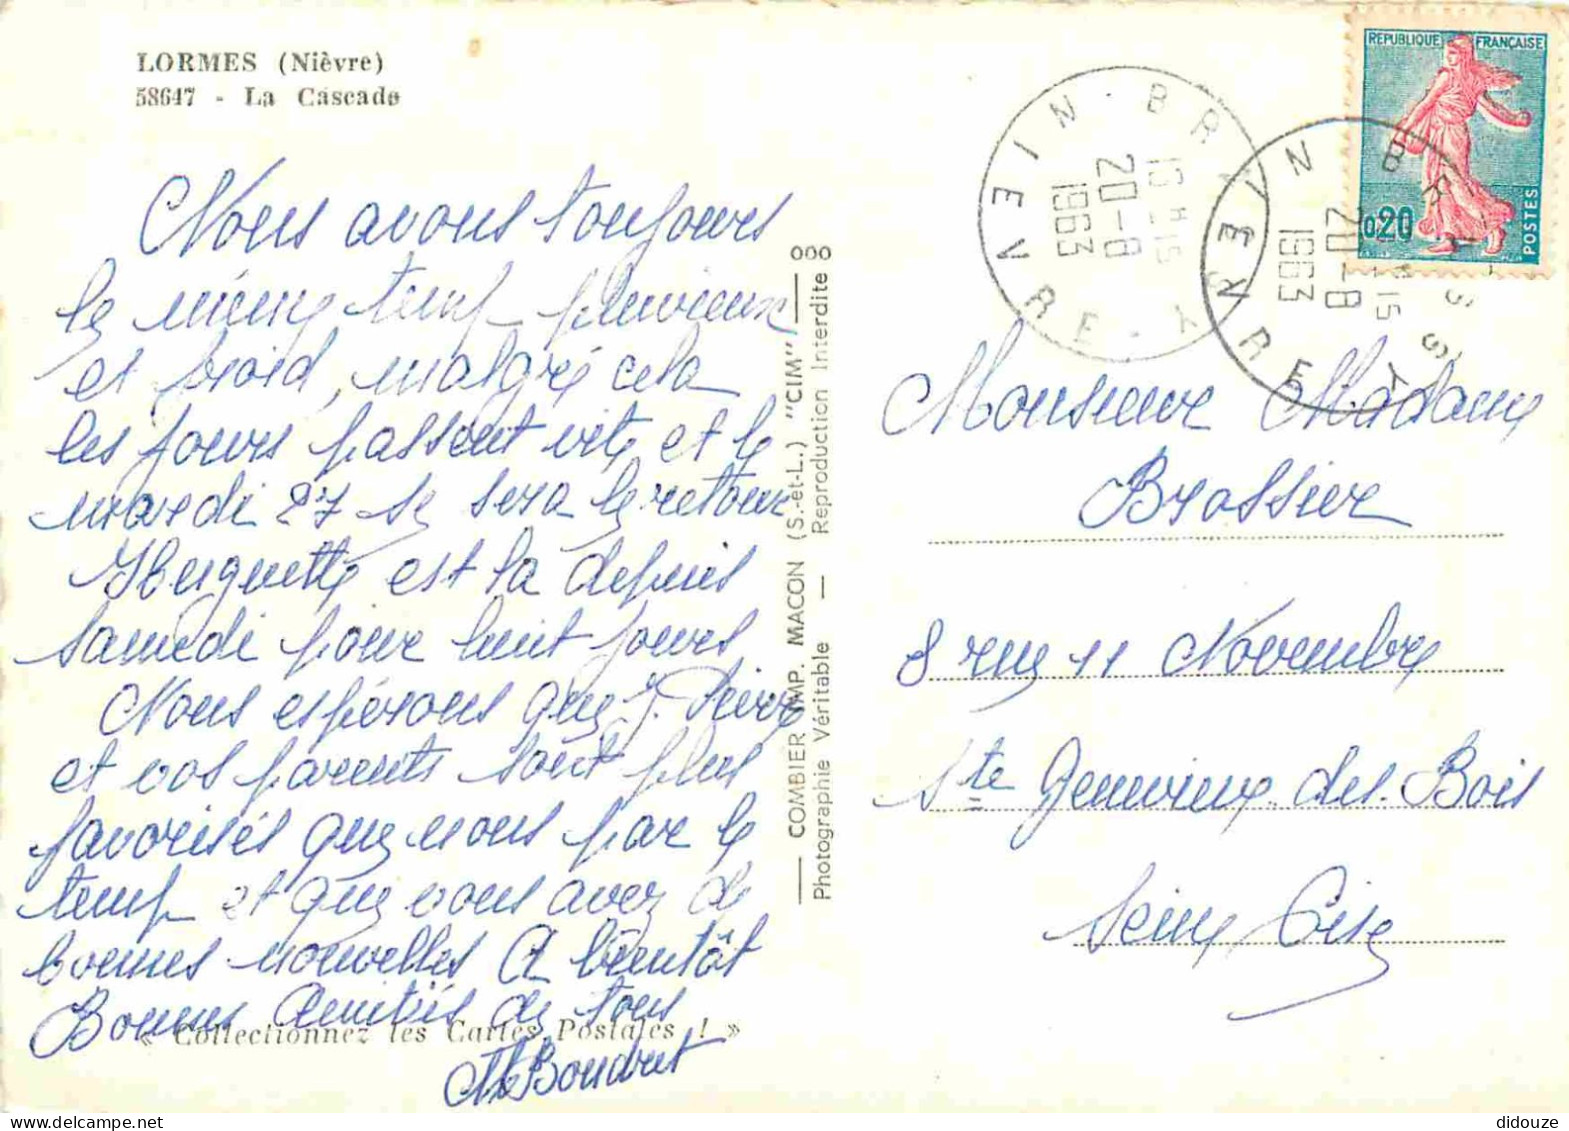 LORMES (Nièvre)
58647 - La Cascade
Nous avons toujours
le même temp pluvieux
et froid, malgré cela
les jours passent vite et le
mardi 27 se sera le retour
Huguette est la depuis
samedi pour huit jours
Nous espérons que J. Pierre
et vos parents sont plus
favorisés que nous par le
temp et que vous avez de
bonnes nouvelles A bientôt
Bonnes Amitiés de tous
Boudret
« Collectionnez les Cartes Postales ! »
COMBIER IMP. MACON (S.-et-L.) "CIM"
Photographie Véritable — Reproduction Interdite
REPUBLIQUE FRANÇAISE
0,20
POSTES
BRINON-
13H15
20-8
1963
NIEVRE
13H15
20-8
1963
NIEVRE
Monsieur Madame
Brossier
8 rue 11 Novembre
Ste Genevieve des Bois
Seine Oise
didouze